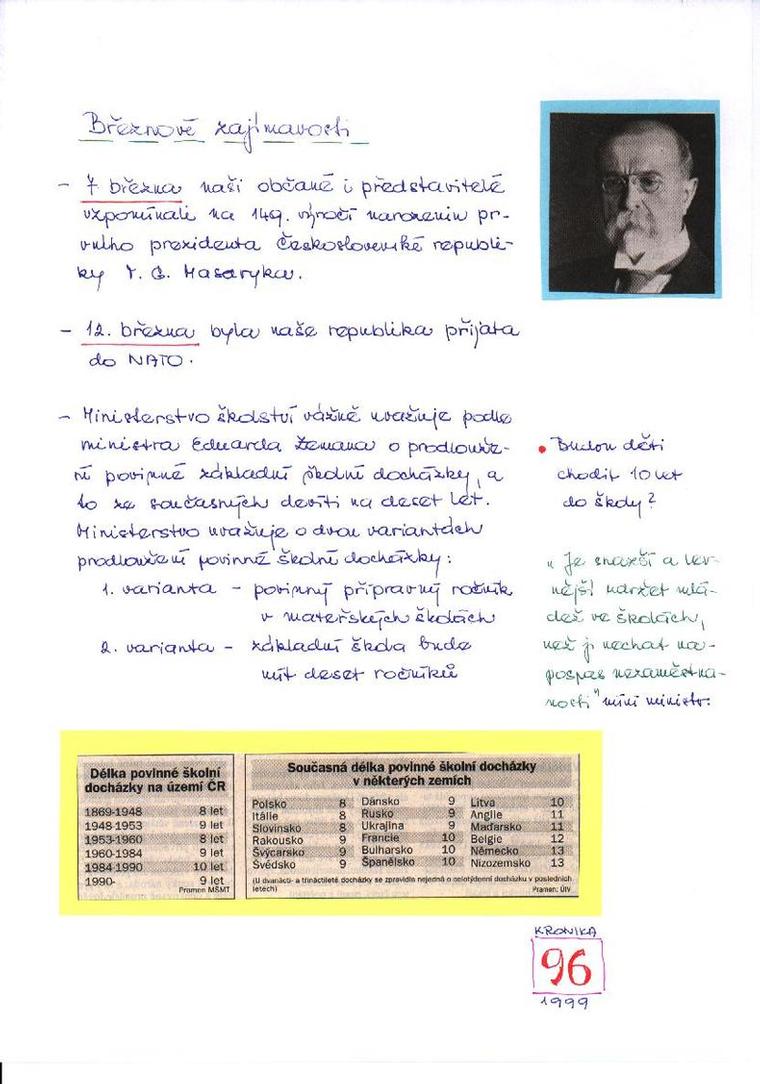 Březnové zajímavosti
- 7. března naši občané i představitelé
vzpomínali na 149. výročí narozenin pr-
vního prezidenta Československé republi-
ky T. G. Masaryka.
- 12. března byla naše republika přijata
do NATO.
- Ministerstvo školství vážně uvažuje podle
ministra Eduarda Zemana o prodlouže-
ní povinné základní školní docházky, a
to ze současných devíti na deset let.
Ministerstvo uvažuje o dvou variantách
prodloužení povinné školní docházky:
1. varianta - povinný přípravný ročník
v mateřských školách
2. varianta - základní škola bude
mít deset ročníků
• Budou děti
chodit 10 let
do školy?
"Je snazší a lev-
nější udržet mlá-
dež ve školách,
než ji nechat na-
pospas nezaměstna-
nosti" míní ministr.
Délka povinné školní
docházky na území ČR
1869-1948 8 let
1948-1953 9 let
1953-1960 8 let
1960-1984 9 let
1984-1990 10 let
1990- 9 let
Pramen MŠMT
Současná délka povinné školní docházky
v některých zemích
Polsko 8 Dánsko 9 Litva 10
Itálie 8 Rusko 9 Anglie 11
Slovinsko 8 Ukrajina 9 Maďarsko 11
Rakousko 9 Francie 10 Belgie 12
Švýcarsko 9 Bulharsko 10 Německo 13
Švédsko 9 Španělsko 10 Nizozemsko 13
(U dvanácti- a třináctileté docházky se zpravidla nejedná o celotýdenní docházku v posledních
letech) Pramen: ÚIV
KRONIKA
96
1999